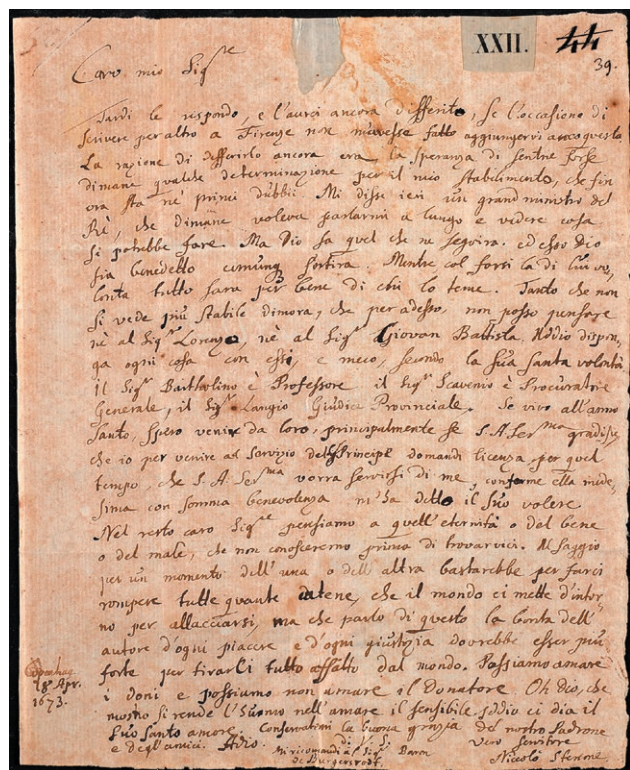 XXII.
44
39.
Caro mio Sigre
Tardi le rispondo, e l'aurei ancora differito, se l'occasione di
scrivere per altro a Firenze non m'avesse fatto aggiungervi anco questo
La razione di differirlo ancora era la speranza di sentire forse
dimane qualche determinazione per il mio stabilimento, che fin
ora sta ne' primi dubbii. Mi disse ieri un grand ministro del
Rè, che dimane voleva parlarmi a lungo e vedere cosa
si potrebbe fare. Ma Dio sa quel che ne seguira. ed esso Dio
sia benedetto comunq sortira. Mentre col farsi la di lui vo,
lontà tutto sara per bene di chi lo teme. Tanto che non
si vede più stabile dimora, che per adesso non posso pensare
nè al Sigr Lorenzo, nè al Sigr Giovan Battista. Iddio dispon,
ga ogni cosa con essi, e meco, secondo la sua santa volontà
il Sigr Bartholino è Professore il Sigr Scavenio è Procuratre
Generale, il Sigr Langio Giudice Provinciale. Se vivo all'anno
santo, spero venire da loro, principalmente se S.A.Serma gradisce
che io per venire al servizio del Principe domandi licenza, per quel
tempo, che S.A.Serma vorra servirsi di me, conforme ella mede,
sima con somma benevolenza m'ha detto il suo volere
Nel resto caro Sigre pensiamo a quell'eternità o del bene
o del male, che non conosceremo prima di trovarvici. Un saggio
per un momento dell'una o dell'altra bastarebbe per farci
rompere tutte quante catene, che il mondo ci mette d'intor,
no per allacciarsi, ma che parlo di questo la bontà dell'
autore d'ogni piacere e d'ogni giustizia dovrebbe esser più
forte per tirarci tutto affatto dal mondo. Possiamo amare
i doni e possiamo non amare il Donatore Oh Dio, che
mostro si rende l'huomo nell'amare il sensibile Iddio ci dia il
suo santo amore. Conservatemi la buona grazia del nostro Padrone
e degl'amici. Adio.
di V.S.
Vero servitore
Mi ricomandi al Sigr Baron
Niccolò Stenone
18 Apr.
1673.